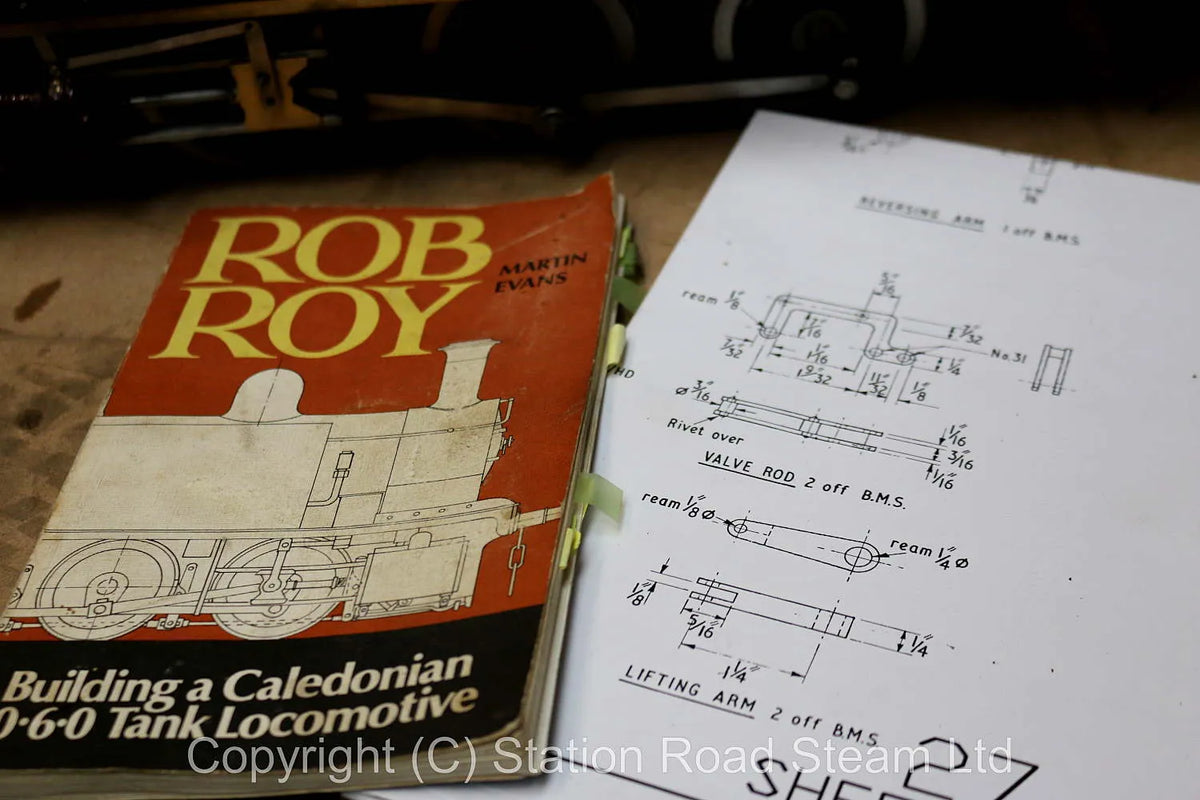 ROB
ROY
MARTIN
EVANS
Building a Caledonian
0·6·0 Tank Locomotive
REVERSING ARM 1 off B.M.S
5/16"
ream 1/8"
7/16
7/32
No.31
7/32
1 1/16
1/4
9/32
11/32
1/8
Ø 3/16"
Rivet over
1/16
3/16
1/16
VALVE ROD 2 off B.M.S.
ream 1/8"Ø
ream 1/4"Ø
1/8"
5/16"
1/4"
1 1/4"
LIFTING ARM 2 off B.M.S.
Copyright (C) Station Road Steam Ltd